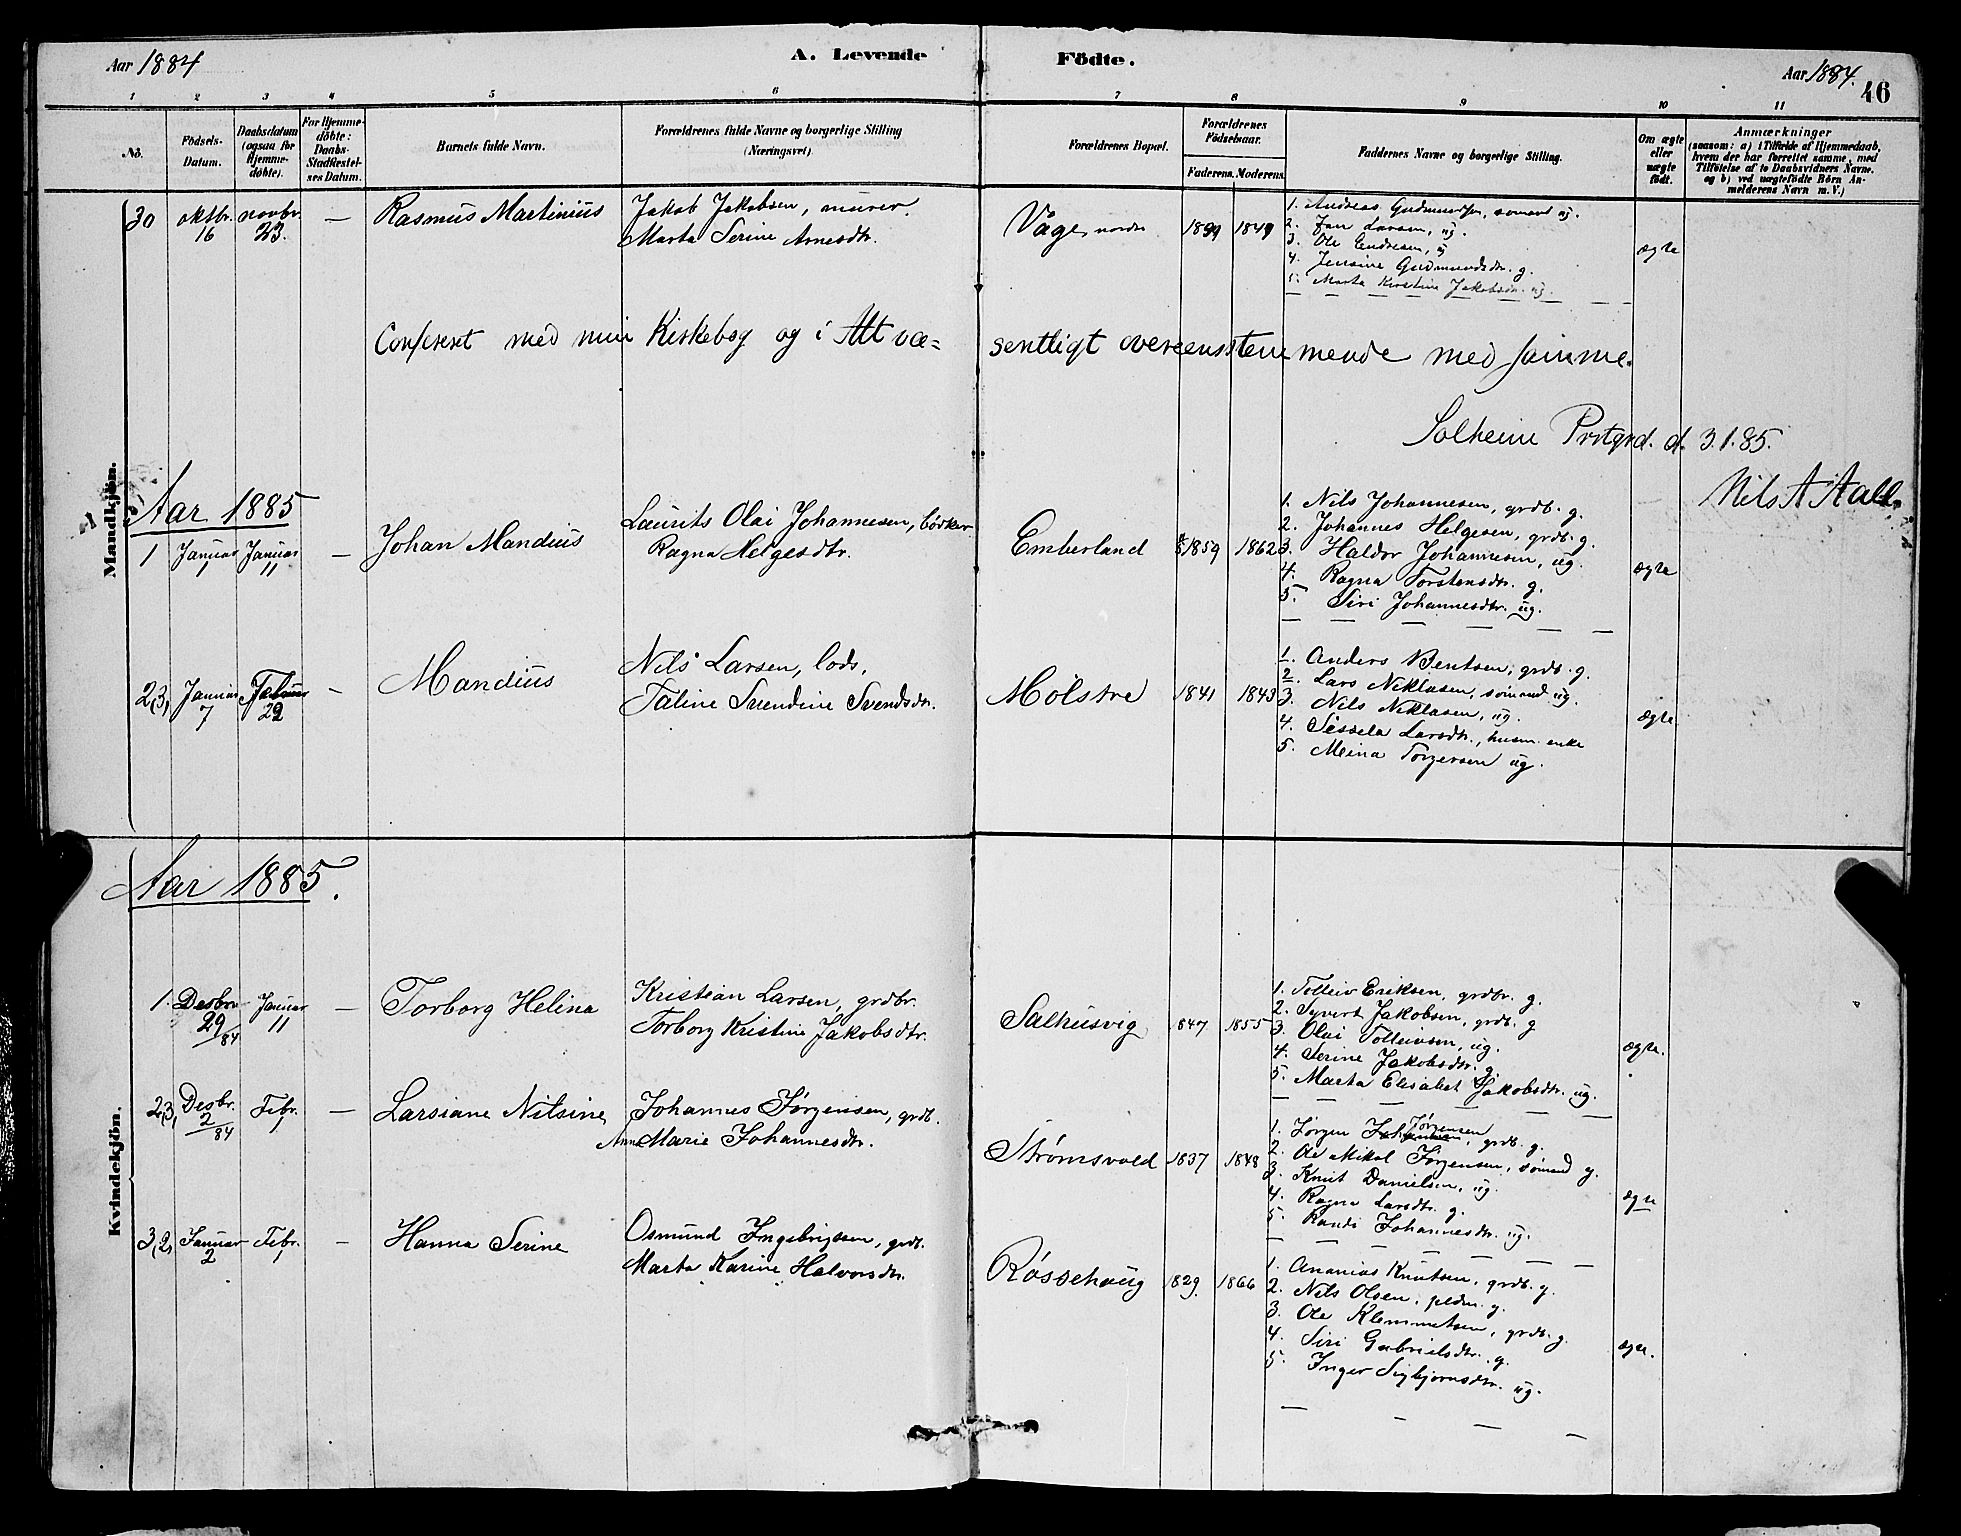 Aar 1884
A. Levende Födte.
Aar 1884.
46
1 2 3 4 5 6 7 8 9 10 11
No.
Födsels-Datum.
Daabsdatum (ogsaa for Hjemme-döbte).
For Hjemme-döbte: Daabs-Stadfæstel-ses Datum.
Barnets fulde Navn.
Forældrenes fulde Navne og borgerlige Stilling (Næringsvei).
Forældrenes Bopæl.
Forældrenes Födselsaar.
Faderens. Moderens.
Faddernes Navne og borgerlige Stilling.
Om ægte eller uægte födt.
Anmærkninger
(saasom: a) i Tilfælde af Hjemmedaab, hvem der har forrettet samme, med Tilföielse af to Daabsvidners Navne. og b) ved uægtefödte Börn Anmelderens Navn m. V.)
Mandkjön.
30 oktbr. 16 novbr. 23. — Rasmus Martinius
Jakob Jakobsen, murer.
Marta Serine Arnesdtr.
Våge, nordre 1849 ægte
1. Andreas Gudmundsen, sömand ug.
2. Jan Larsen, ug.
3. Ole Endresen, ug
4. Jensine Gudmundsdtr. g.
5. Marta Kirstine Jakobsdtr. ug.
Confereret med min Kirkebog og i Alt væ= sentligt overensstemmende med samme.
Solheim Prstgrd. d. 3.1.85.
Nils A Aall.
Aar 1885
1 Januar 1 Januar 11 — Johan Mandius
Laurits Olai Johannesen, bödker
Ragna Helgesdtr.
Emberland 1859 1862 ægte
1. Nils Johannesen, grdb. g.
2. Johannes Helgesen, grdb. g.
3. Haldor Johannesen, ug.
4. Ragna Torstensdtr. g.
5. Siri Johannesdtr. ug.
2,3, Januar 7 22 — Mandius
Nils Larsen, lods,
Taline Svendine Svendsdtr.
Mölstre 1841 1843 ægte
1. Anders Bentsen, grdb. g.
2. Lars Niklasen, sömand ug.
3. Nils Niklasen, ug.
4. Sessela Larsdtr., husm. enke
5. Meina Torgersen ug.
Kvindekjön.
Aar 1885.
1. Desbr. 29/84 Januar 11 — Torborg Helina
Kristian Larsen, grdbr.
Torborg Kristine Jakobsdtr.
Salhusvig 1847 1855 ægte.
1. Tolleiv Eriksen, grdbr. g.
2. Syvert Jakobsen, grdb. g
3. Olai Tolleivsen, ug.
4. Serine Jakobsdtr. g.
5. Marta Elisabet Jakobsdtr. ug.
2,3, Desbr. 2/84 Febr. 1 — Larsiane Nilsine
Johannes Jørgensen, grdb.
Anne Marie Johannesdtr.
Strömsvold 1837 1848 ægte
1. Jørgen Jørgensen, grdb. g.
2. Ole Mikal Jørgensen, sömand g.
3. Knut Danielsen, ug.
4. Ragna Larsdtr. g.
5. Randi Johannesdtr. ug.
3,2, Januar 2 Febr. 1 — Hanna Serine
Osmund Ingebrigtsen, grdb.
Marta Karine Halvorsdtr.
Røssehaug 1829 1866 ægte.
1. Ananias Knutsen, grdb. g.
2. Nils Olsen, g.
3. Ole Klemmetsen, grdb. g.
4. Siri Gabrielsdtr. g.
5. Inger Sigbjörnsdtr. ug.